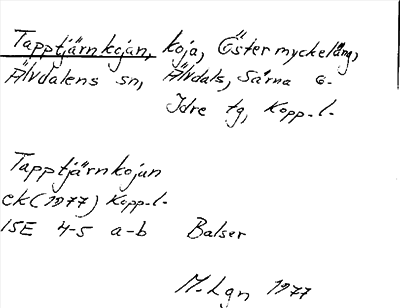 Tapptjärnkojan, koja, Östermyckelång,
Älvdalens sn, Älvdals, Särna o.
Idre tg, Kopp.l.
Tapptjärnkojan
ek (1977) Kopp.l.
15E 4-5 a-b Balser
M.Lgn 1977